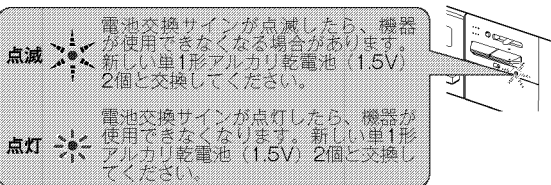 点滅
電池交換サインが点滅したら、機器
が使用できなくなる場合があります。
新しい単1形アルカリ乾電池（1.5V）
2個と交換してください。
点灯
電池交換サインが点灯したら、機器が
使用できなくなります。新しい単1形
アルカリ乾電池（1.5V）2個と交換し
てください。